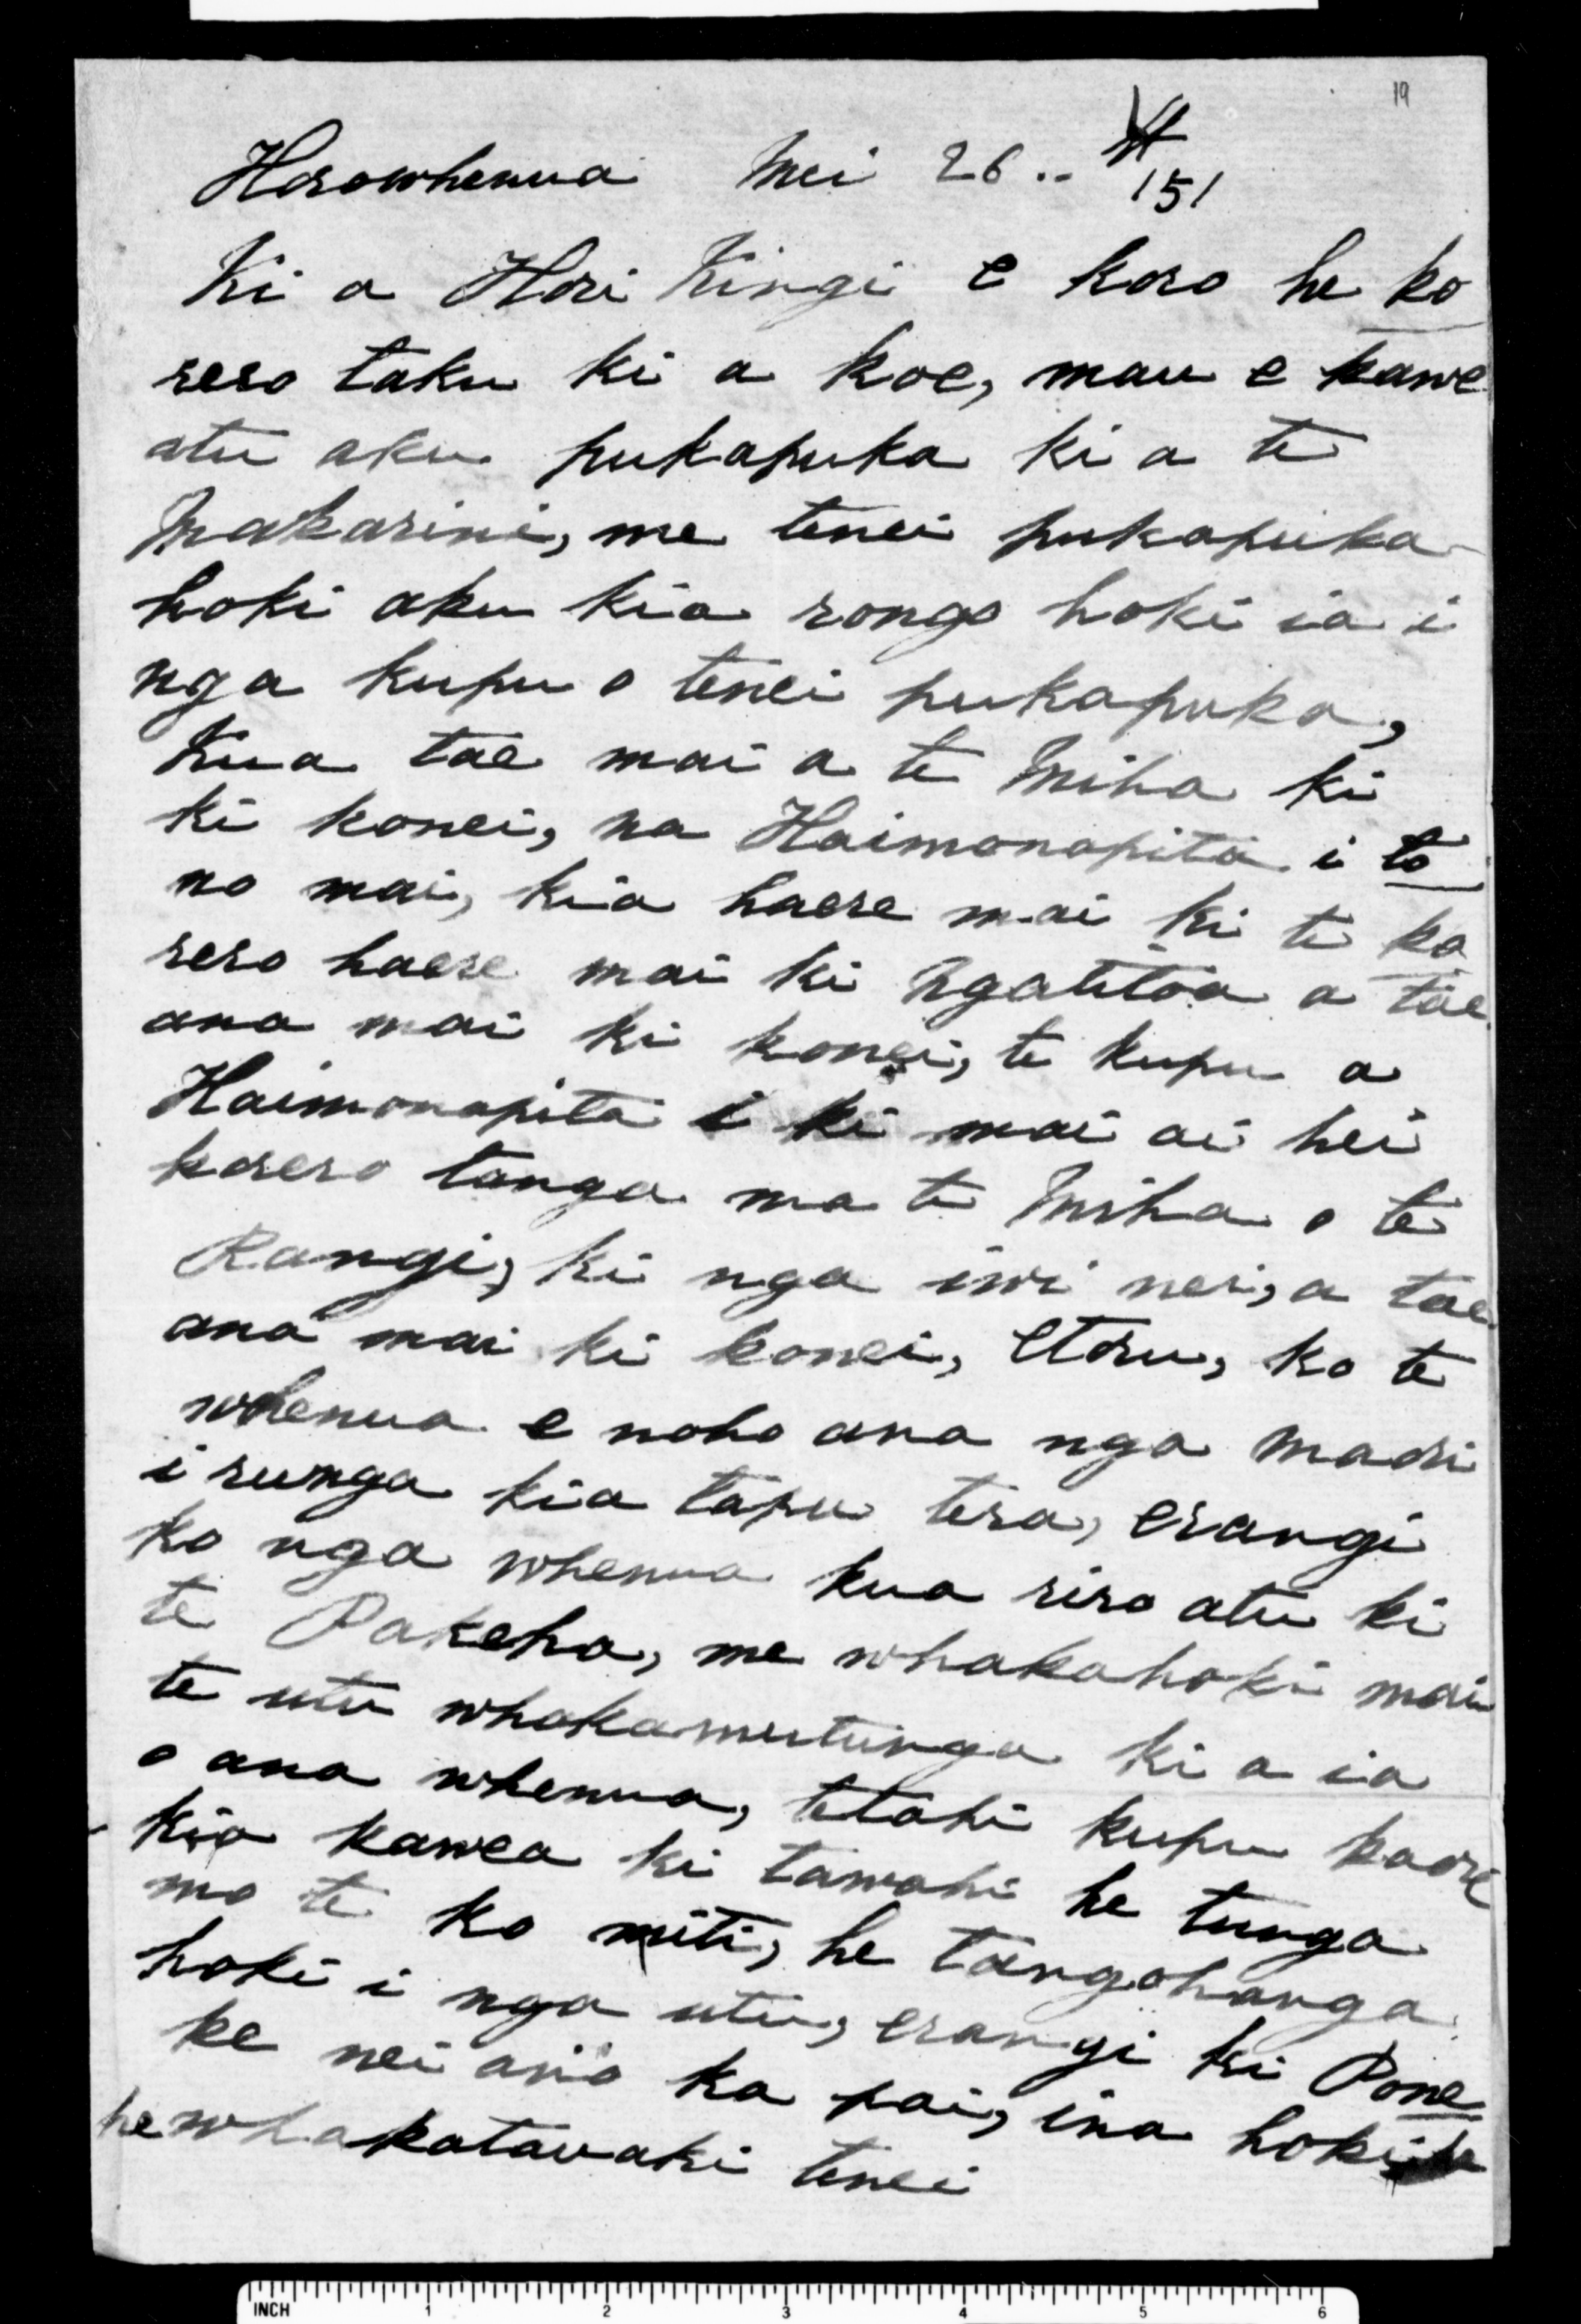 19
Horowhenua Mei 26..
151
Ki a Hori Kingi e koro he ko
rero taku ki a koe, mau e kawe
atu aku pukapuka ki a te
Makarini, me tenei pukapuka
hoki aku kia rongo hoki ia i
nga kupu o tenei pukapuka,
Kua tae mai a te Miha ki
ki konei, na Haimonapita i to
no mai, kia haere mai ki te ko
rero haere mai ki Ngatitoa a tae
ana mai ki konei, te kupu a
Haimonapita i ki mai ai hei
korero tanga ma te Miha o te
Rangi, ki nga iwi nei, a tae
ana mai ki konei, Etoru, ko te
whenua e noho ana nga maori
i runga kia tapu tera, erangi
ko nga whenua kua riro atu ki
te Pakeha, me whakahoki mai
te utu whakamutunga ki a ia
o ana whenua, tetahi kupu kaore
kia kawea ki tawahi he tunga
mo te ko miti, he tangohanga
hoki i nga utu, erangi ki Pone
ke nei ano ka pai, ina hoki
he whakatauaki tenei
INCH 1 2 3 4 5 6